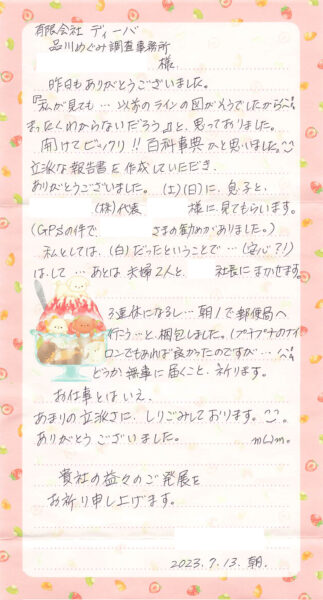 有限会社 ディーバ
品川めぐみ調査事務所
様
昨日もありがとうございました。
『私が見ても…以前のラインの図がメウでしたから
まったくわからないだろう』と、思っておりました。
開けてビックリ!! 百科事典かと思いました。
立派な報告書を作成していただき、
ありがとうございました。(土)(日)に、息子と、
(株)代表 様に見てもらいます。
(GPSの件で さまの勧めがありました。)
私としては、(白)だったということで…(安心?!)
はして…あとは夫婦2人と、 社長にまかせます。
3連休になるし…朝1で郵便局へ
行こう…と、梱包しました。(プチプチのナイ
ロンでもあれば良かったのですが…
どうか無事に届くこと、祈ります。
お仕事とはいえ、
あまりの立派さに、しりごみしております。
ありがとうございました。 m(_)m。
貴社の益々のご発展を
お祈り申し上げます。
2023.7.13.朝.